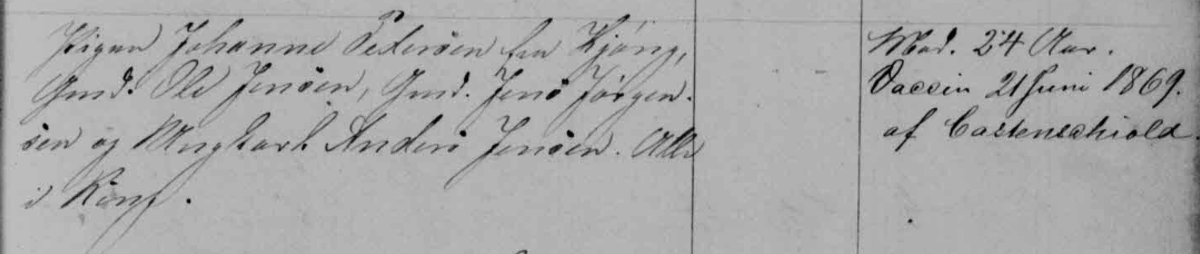 Pigen Johanne Pedersen fra Kjøng,
Gmd. Ole Jensen, Gmd. Jens Jørgen-
sen og Ungkarl Anders Jensen. Alle
i Køng.
Mod. 24 Aar.
Vaccin 21 Juni 1869.
af Castenschiold